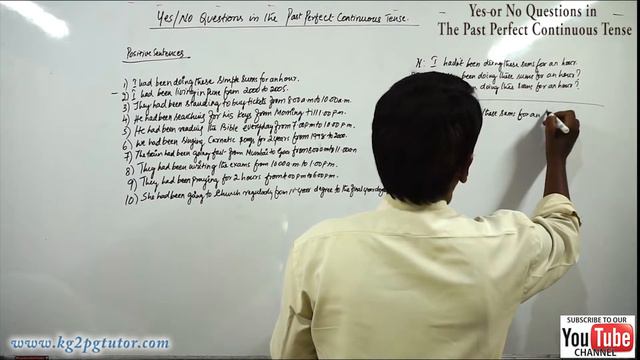 Yes/No Questions in the Past Perfect Continuous Tense.
Yes-or No Questions in
The Past Perfect Continuous Tense
Positive Sentences
1) I had been doing these simple sums for an hour.
2) I had been living in Pune from 2000 to 2005.
3) They had been standing to buy tickets from 8:00 a.m to 10:00 a.m.
4) He had been searching for his keys from Morning till 1:00 p.m.
5) He had been reading the Bible everyday from 7:00 p.m to 10:00 p.m.
6) We had been singing Carnatic songs for 2 years from 1998 to 2000.
7) The train had been going fast from Mumbai to Goa from 8:00 am to 11:00 am
8) They had been writing the exams from 10:00 a.m to 1:00 p.m.
9) They had been praying for 2 hours from 4:00 p.m to 6:00 p.m.
10) She had been going to church regularly from 1st year degree to the final year degree
N: I hadn't been doing these sums for an hour.
been doing these sums for an hour?
doing these sums for an hour?
these sums for an
www.kg2pgtutor.com
SUBSCRIBE TO OUR
YouTube
CHANNEL